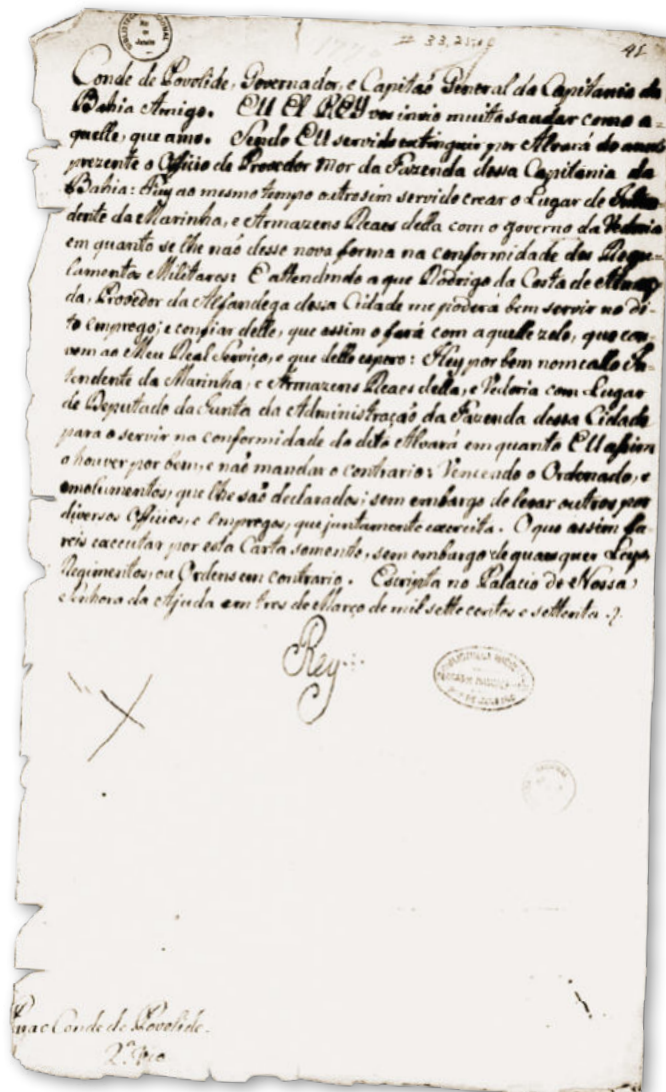 BIBLIOTHECA NACIONAL
Rio de Janeiro
II 33,25,49
41
Conde de Povolide, Governador, e Capitaõ General da Capitania da
Bahia Amigo. EU EL REY vos invio muito saudar como a-
quelle, que amo. Sendo EU servido extinguir por Alvará do
prezente o Officio de Provedor Mor da Fazenda dessa Capitania da
Bahia: Fuy ao mesmo tempo outrosim servido crear o Lugar de Inten-
dente da Marinha, e Armazens Reaes della com o governo da Vedoria
em quanto se lhe naõ desse nova forma na conformidade dos Regu-
lamentos Militares: E attendendo a que Rodrigo da Costa de Almey-
da, Provedor da Alfandega dessa Cidade me poderá bem servir no di-
to emprego; e confiar delle, que assim o fará com aquelle zelo, que con-
vem ao Meu Real Serviço, e que delle espero: Hey por bem nomeallo In-
tendente da Marinha, e Armazens Reaes della, e Vedoria com Lugar
de Deputado da Junta da Administraçaõ da Fazenda dessa Cidade
para o servir na conformidade do dito Alvará em quanto EU assim
o houver por bem, e naõ mandar o contrario: Vencendo o Ordenado, e
emolumentos, que lhe saõ declarados; sem embargo de levar outros por
diversos Officios, e Empregos, que juntamente exercita. O que assim fa-
reis executar por esta Carta somente, sem embargo de quaes quer Leys,
Regimentos, ou Ordens em contrario. Escripta no Palacio de Nossa
Senhora da Ajuda em tres de Março de mil sette centos e settenta.
Rey
Para o Conde de Povolide.
2.ª